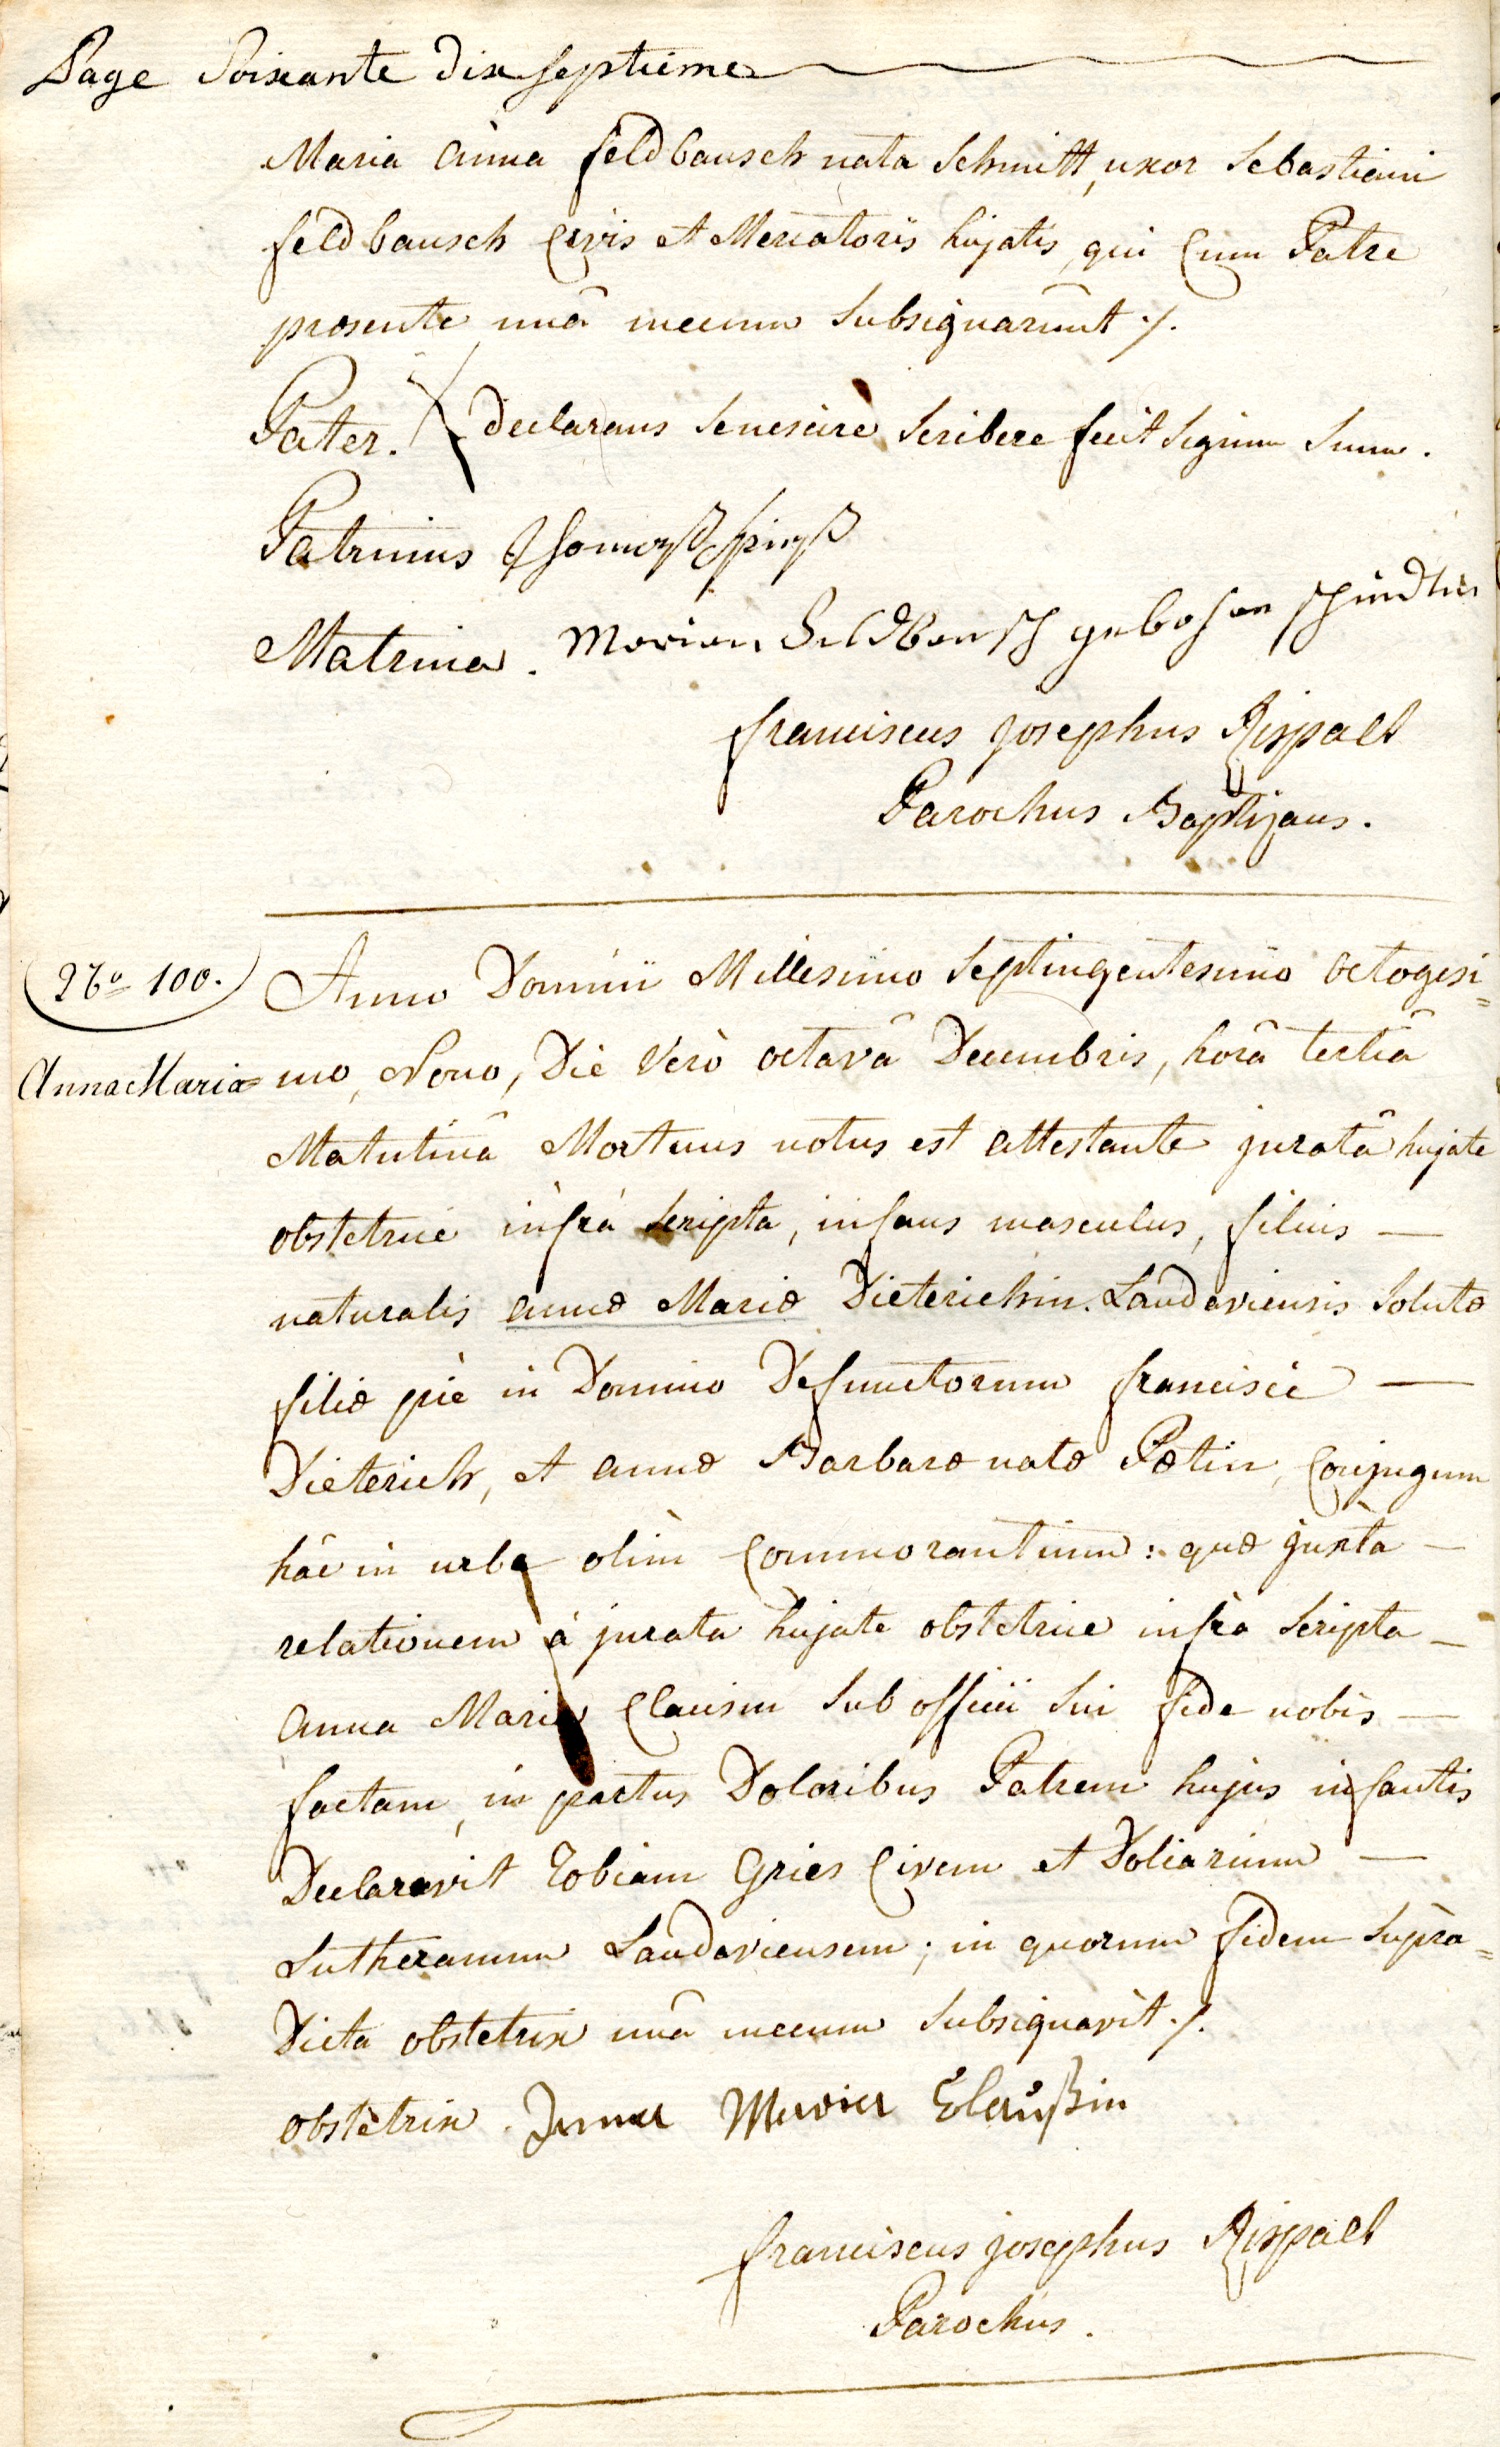 Page Soixante dix septieme
Maria anna feldbausch nata Schmitt, uxor Sebastiani
feldbausch Civis et Mercatoris hujatis, qui Cum Patre
præsente unâ mecum Subsignarunt ./.
Pater. Declarans Se nescire Scribere fecit Signum Suum.
Patrinus
Matrina. Marian feldbausch gebohren
franciscus josephus Rispalt
Parochus Baptizans.
No 100. Anno Domini Millesimo Septingentesimo octogesi=
Anna Maria mo, Nono, Die Verò octavâ Decembris, horâ tertiâ
Matutinâ Mortuus natus est attestante juratâ hujate
obstetrice infrà Scripta, infans masculus, filius —
naturalis annæ Mariæ Dieterichin. Landaviensis Solutæ
filiæ piè in Domino Defunctorum francisci —
Dieterich, et annæ Barbaræ natæ Pætin, Conjugum
hâc in urbe olim Commorantium: quæ juxta —
relationem à jurata hujate obstetrice infrà Scripta —
anna Maria Clausin Sub officii Sui fide nobis —
factam, in partus Doloribus Patrem hujus infantis
Declaravit Tobiam Gries Civem et Doliarium —
Lutheranum Landaviensem; in quorum fidem Supra=
Dicta obstetrix unâ mecum Subsignavit ./.
obstetrix Anna Maria Claußin
franciscus josephus Rispalt
Parochus.